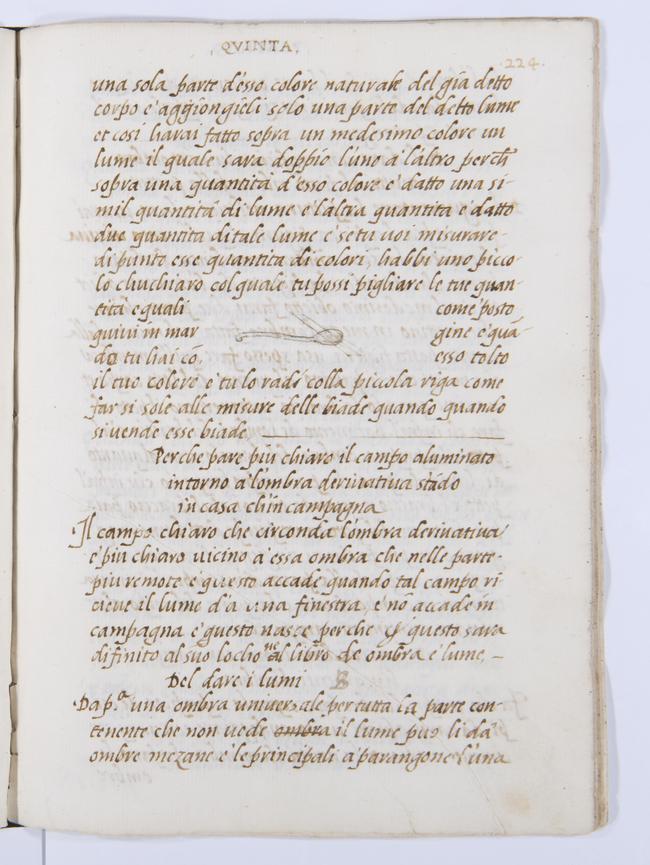 QVINTA.
224.
una sola parte d'esso colore naturale del già detto
corpo e' aggiongieli solo una parte del detto lume
et così harai fatto sopra un medesimo colore un
lume il quale sara doppio l'uno à l'altro perch̃
sopra una quantità d'esso colore è datto una si-
mil quantità di lume e l'altra quantita è datto
due quantita di tale lume e' se tu uoi misurare
di punto esse quantita di colori habbi uno picco-
lo chuchiaro col quale tu possi pigliare le tue quan-
tità equali come posto
quivi in mar gine e quã-
do tu hai cõ esso tolto
il tuo colore e' tu lo radi colla piccola riga come
far si sole alle misure delle biade quando quando
si uende esse biade
Perche pare più chiaro il campo aluminato
intorno à l'ombra deriuatiua stãdo
in casa ch'in campagna
Il campo chiaro che circonda l'ombra deriuatiua
è più chiaro uicino à essa ombra che nelle parte
più remote e questo accade quando tal campo ri
cieue il lume d'à una finestra, e' nõ accade in
campagna e questo nasce perche questo sara
difinito al suo locho ne al libro de ombra e' lume.
Del dare i lumi
Da pª una ombra uniuersale per tutta la parte con-
tenente che non uede ombra il lume puo li dà
ombre mezane e' le principali à parangone l'una